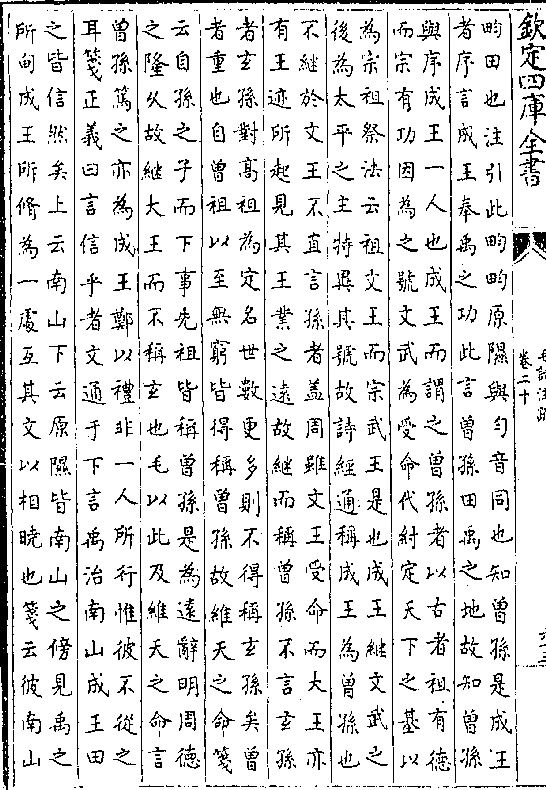 欽定四庫全書
毛詩注疏
卷二十
畇田也注引此畇畇原隰與勻音同也知曾孫是成王
者序言成王奉禹之功此言曾孫田禹之地故知曾孫
與序成王一人也成王而謂之曾孫者以古者祖有德
而宗有功因為之號文武為受命代紂定天下之基以
為宗祖祭法云祖文王而宗武王是也成王繼文武之
後為太平之主特異其號故詩經通稱成王為曾孫也
不繼於文王不直言孫者盖周雖文王受命而大王亦
有王迹所起見其王業之遠故繼而稱曾孫不言玄孫
者玄孫對髙祖為定名世數更多則不得稱玄孫矣曾
者重也自曾祖以至無窮皆得稱曾孫故維天之命箋
云自孫之子而下事先祖皆稱曾孫是為遠辭明周德
之隆乆故繼大王而不稱玄也毛以此及維天之命言
曾孫篤之亦為成王鄭以禮非一人所行惟彼不從之
耳箋正義曰言信乎者文通于下言禹治南山成王田
之皆信然矣上云南山下云原隰皆南山之傍見禹之
所甸成王所脩為一處互其文以相曉也箋云彼南山